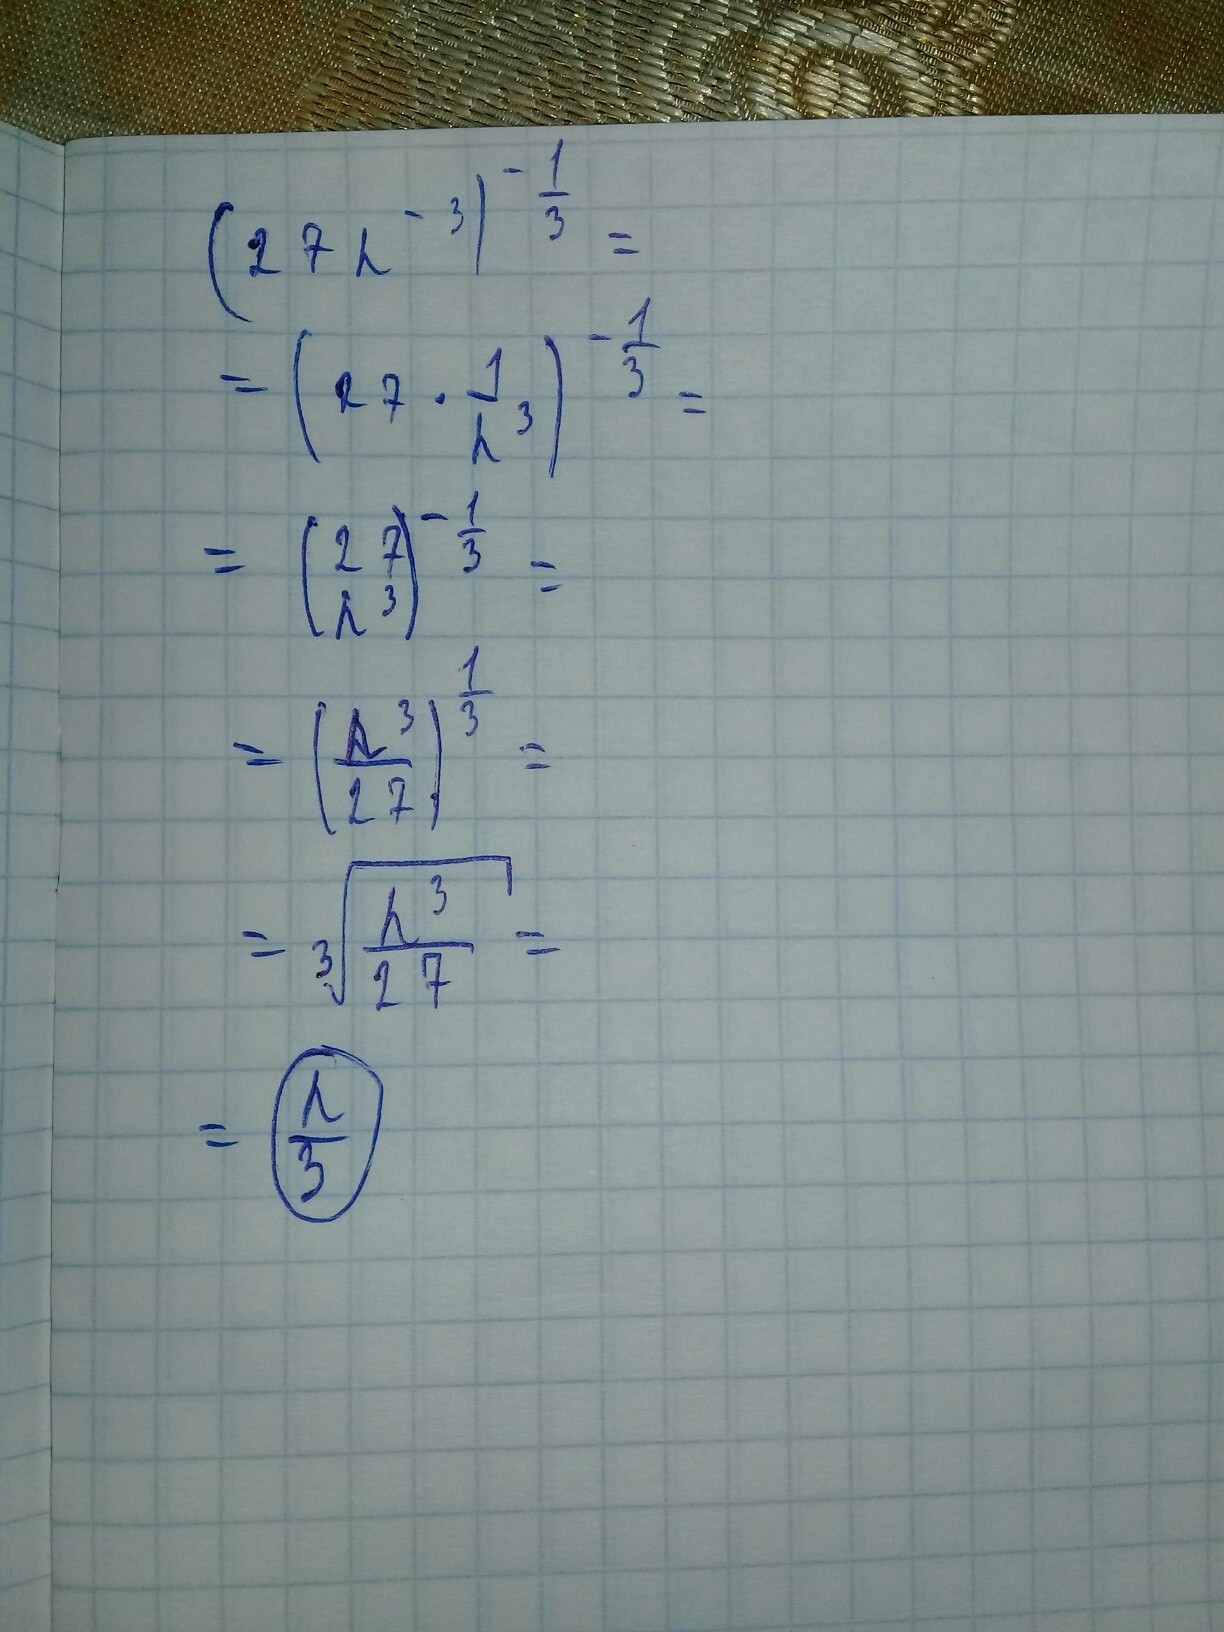 (27h⁻³)^(-1/3) =
= (27 · 1/h³)^(-1/3) =
= (27/h³)^(-1/3) =
= (h³/27)^(1/3) =
= ³√(h³/27) =
= h/3